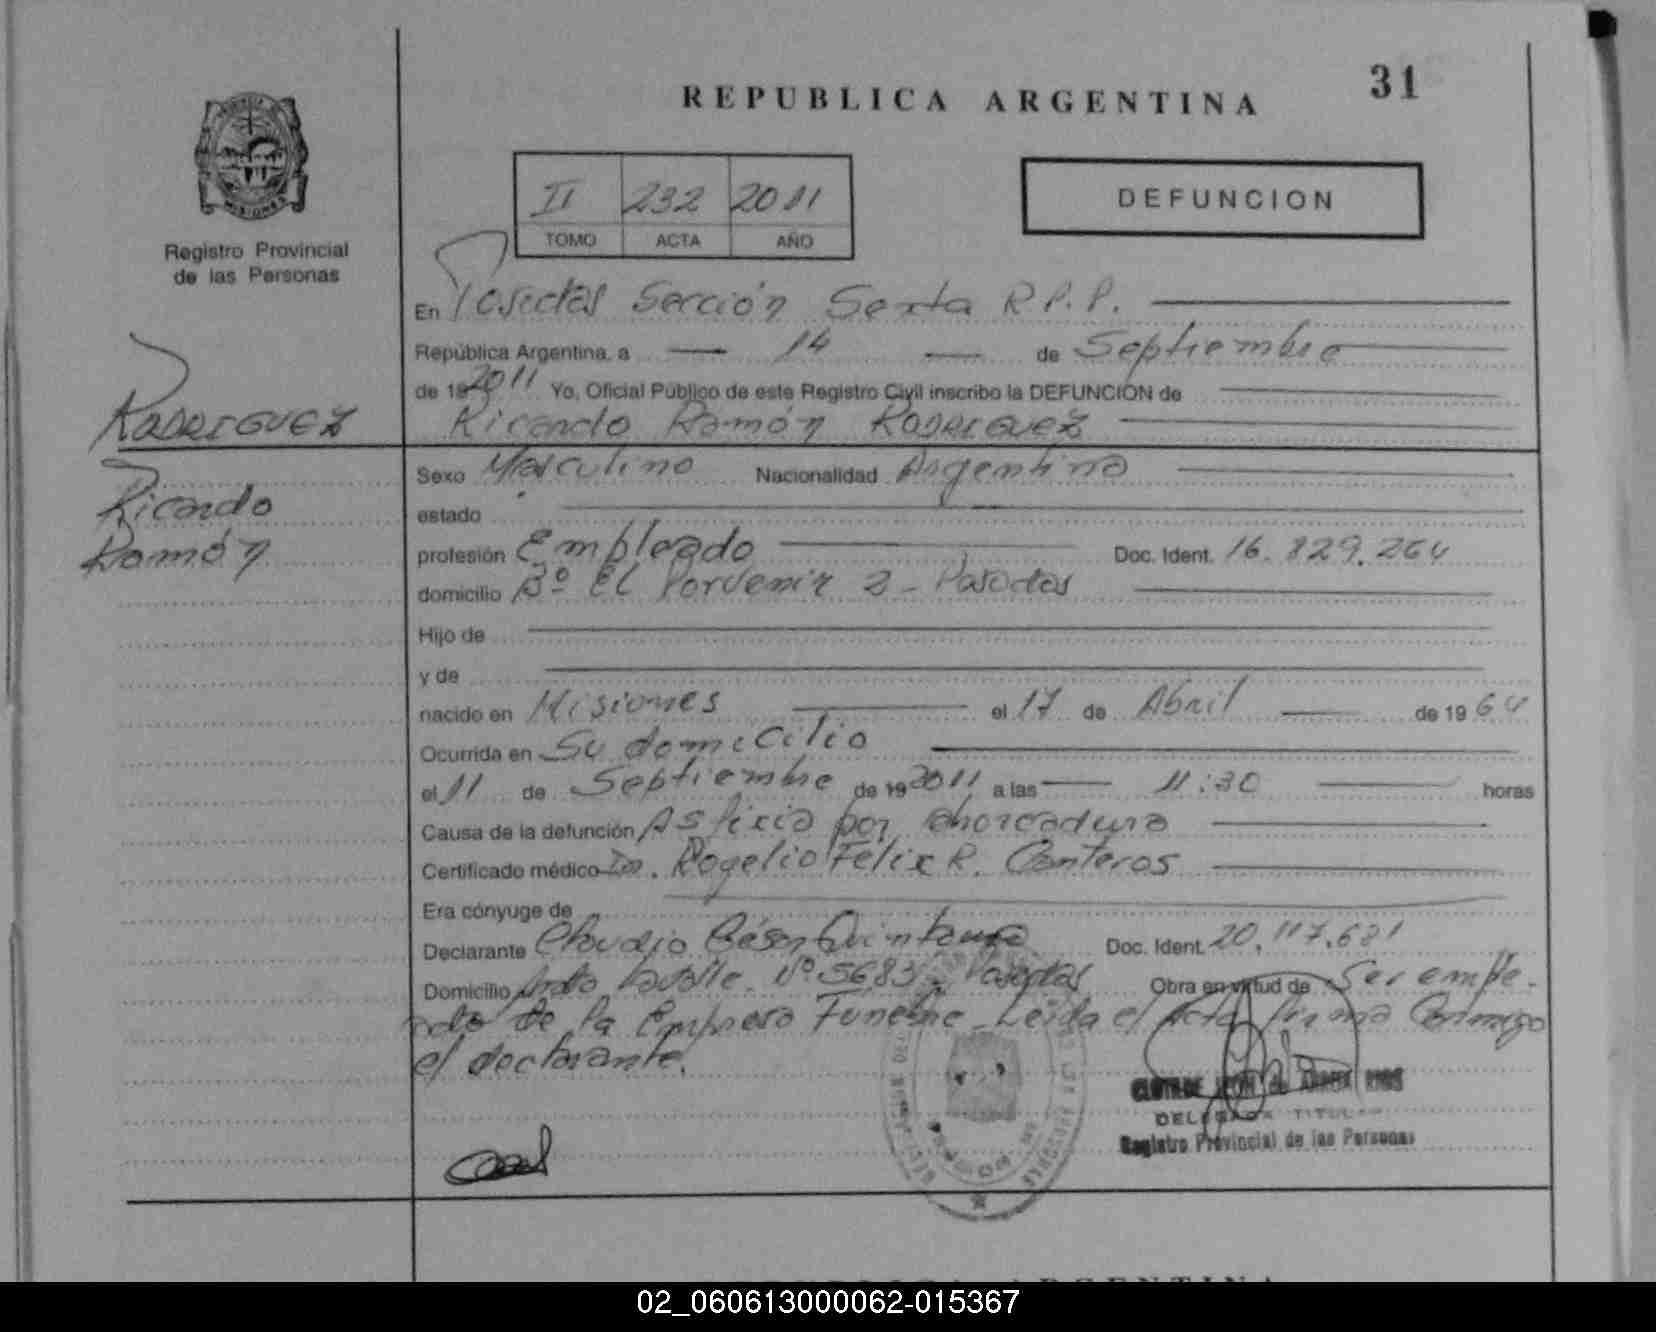 REPUBLICA ARGENTINA
31
MISIONES
Registro Provincial
de las Personas
II 232 2011
TOMO ACTA AÑO
DEFUNCION
En Posadas Sección Sexta R.P.P.
República Argentina, a 14 de Septiembre
de 19 2011 Yo, Oficial Público de este Registro Civil inscribo la DEFUNCION de
RODRIGUEZ
Ricardo Ramón RODRIGUEZ
Ricardo
Ramón
Sexo Masculino Nacionalidad Argentina
estado
profesión Empleado Doc. Ident. 16.829.264
domicilio Bº El Porvenir 2 - Posadas
Hijo de
y de
nacido en Misiones el 17 de Abril de 1964
Ocurrida en Su domicilio
el 11 de Septiembre de 19 2011 a las 11:30 horas
Causa de la defunción Asfixia por ahorcadura
Certificado médico Dr. Rogelio Felix R. Canteros
Era cónyuge de
Declarante Claudio César Quintana Doc. Ident. 20.117.681
Domicilio Nº 5683 - Posadas Obra en virtud de Ser emple-
ado de la Empresa Fúnebre - Leída el acta firma Conmigo
el declarante.
DELEGADA TITULAR
Registro Provincial de las Personas
REPUBLICA ARGENTINA
02_060613000062-015367